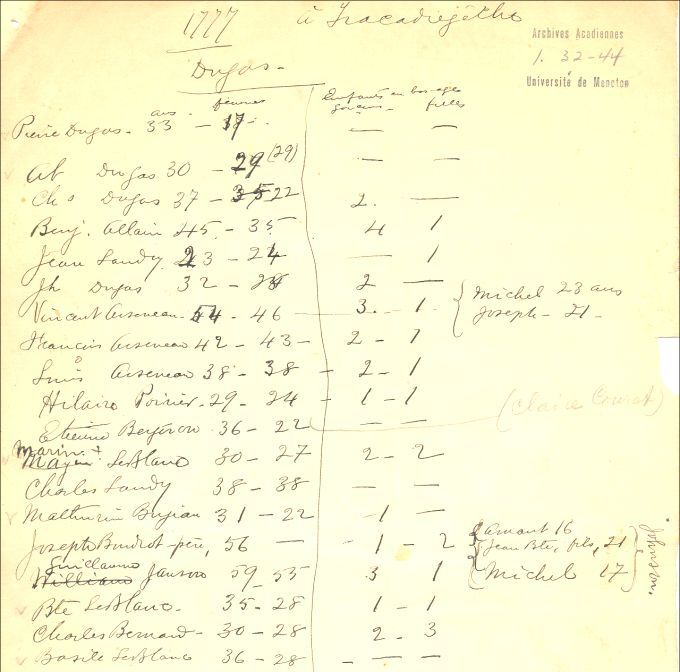 1777 à Tracadiegetche
Archives Acadiennes
1. 32-44
Université de Moncton
Dugas -
ans femmes Enfants en bas-age
garçons - filles
Pierre Dugas - 33 - 17 - — —
Ab Dugas 30 - 29 (29) — —
Chs Dugas 37 - 35 22 2. —
Benj. Allain 45 - 35 4 1
Jean Landry 23 - 24 — 1
Jh Dugas 32 - 2 —
Michel 23 ans
Vincent Arseneau - 54 - 46 — 3. - 1
Joseph - 21 -
Francois Arseneau 42 - 43 - 2 - 1
Arseneau 38 - 38 - 2 - 1
Hilaire Poirier - 29 - 24 - 1 - 1
(Claire )
Etienne Bergeron - 36 - 22 — —
Marin +
LeBlanc 30 - 27 2 - 2
Charles Landry 38 - 38 — —
Mathurin 31 - 22 - 1 —
Amant 16
Joseph Boudrot - père, 56 — - 1 - 2 Jean Bte, fils, 21
Guillaume
William Janson 59 - 55 3 1 Michel 17 Johnson.
Bte LeBlanc - 35 - 28 1 - 1
Charles Bernard - 30 - 28 2 - 3
Basile LeBlanc 36 - 28 - — —